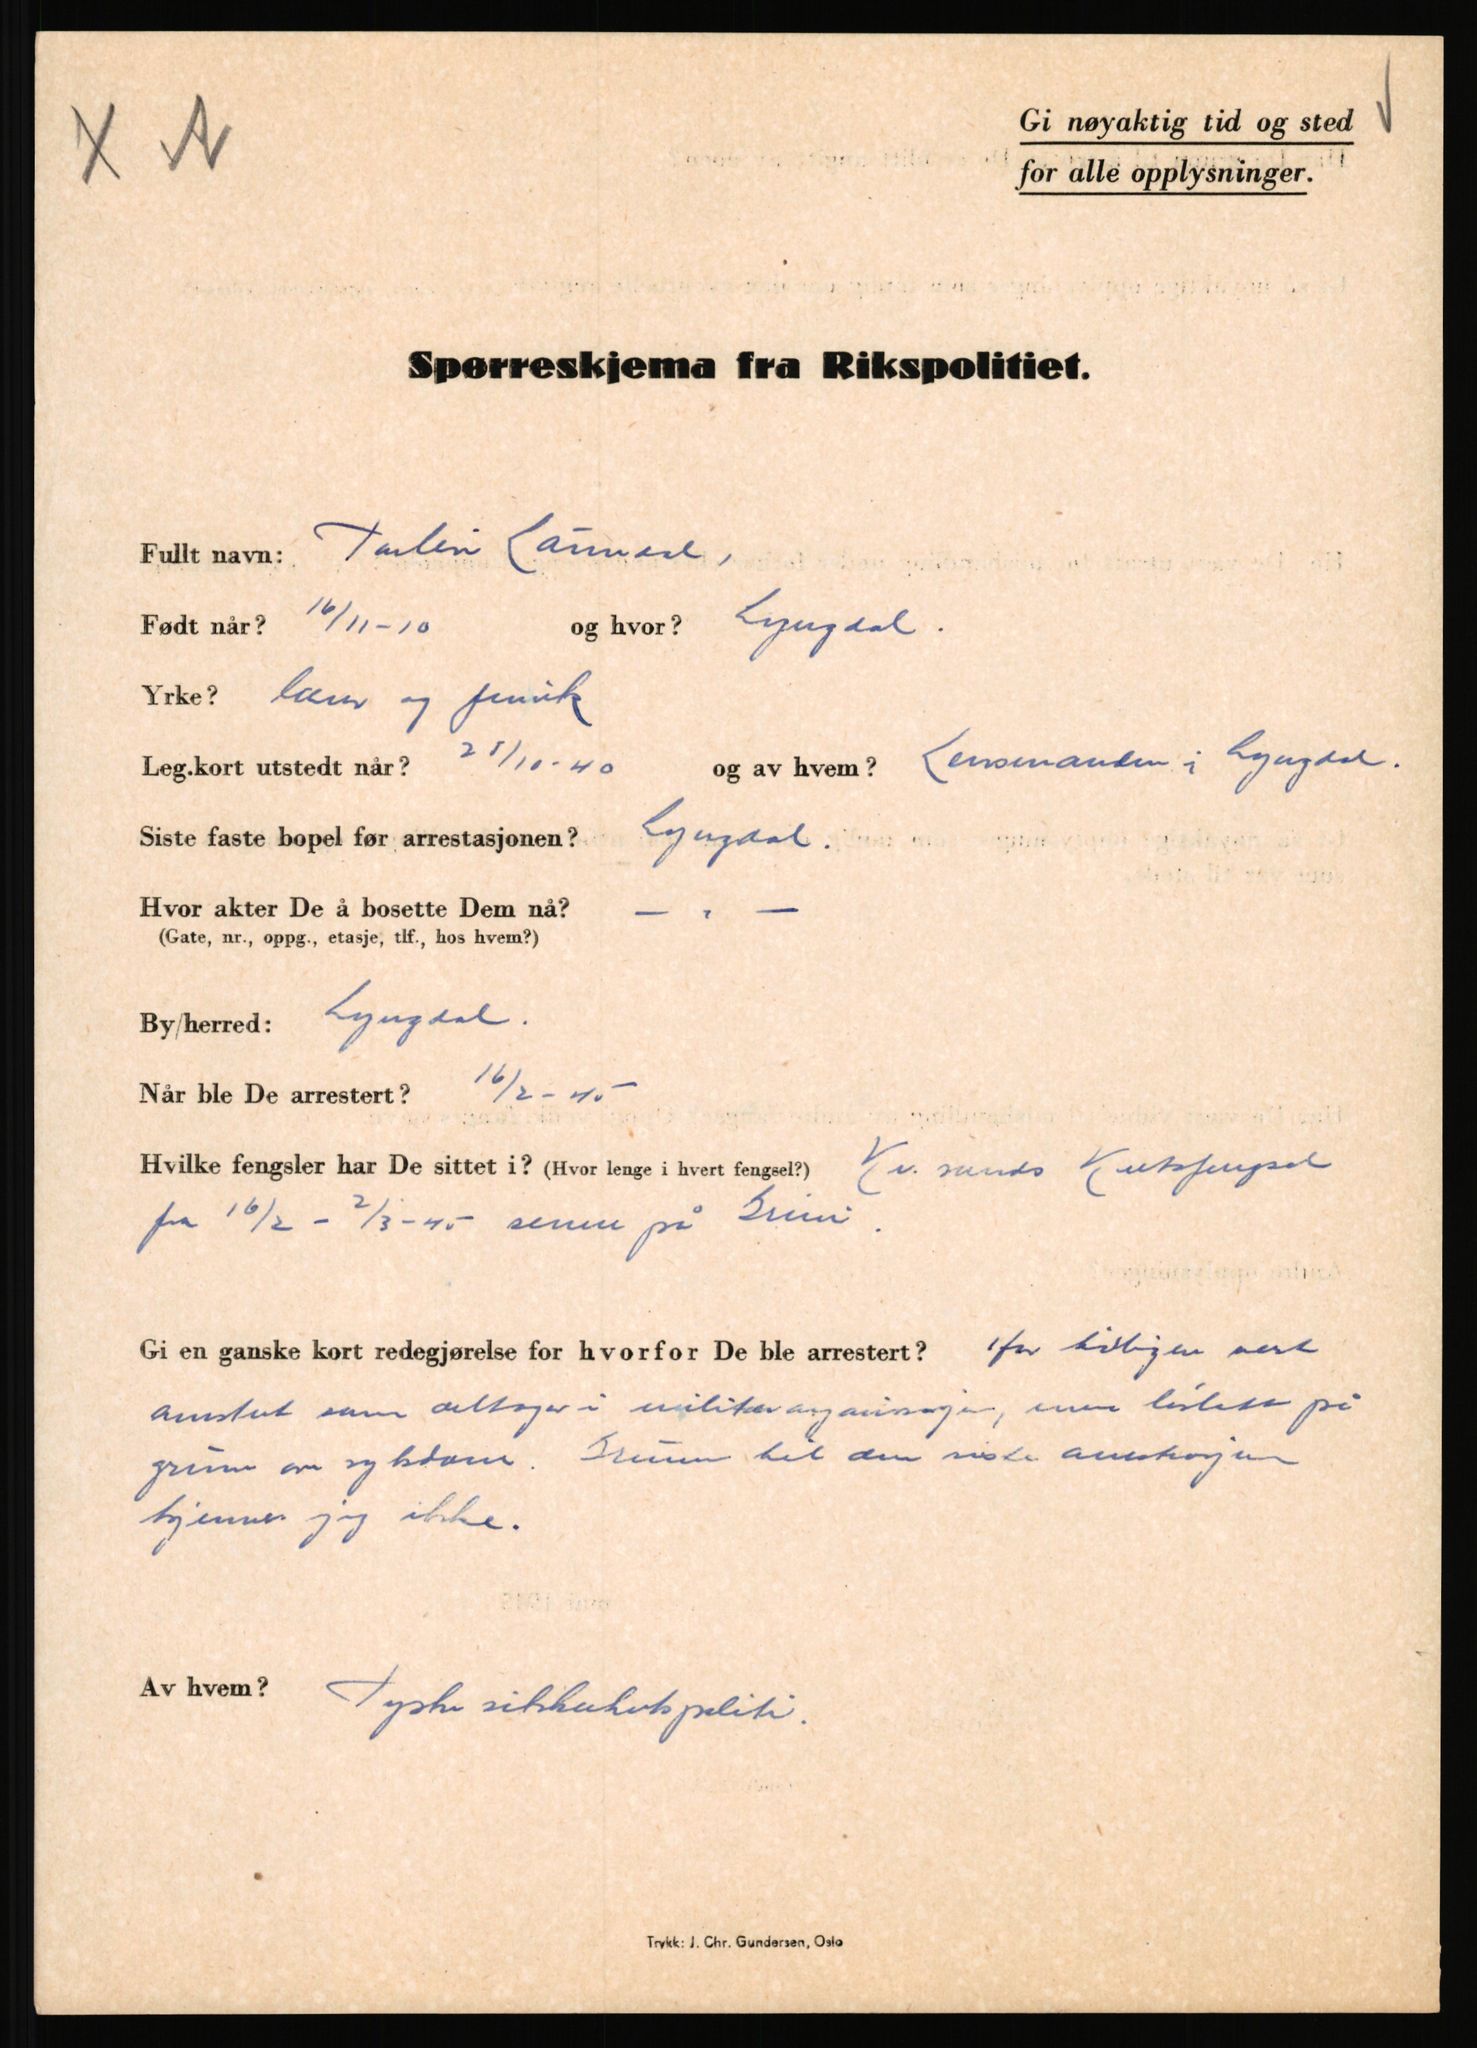 X A
Gi nøyaktig tid og sted
for alle opplysninger.
Spørreskjema fra Rikspolitiet.
Fullt navn:
Født når? 16/11-10 og hvor? Lyngdal.
Yrke? lærer og fenrik
Leg.kort utstedt når? /10-40 og av hvem? Lensmanden i Lyngdal.
Siste faste bopel før arrestasjonen? Lyngdal.
Hvor akter De å bosette Dem nå? — " —
(Gate, nr., oppg., etasje, tlf., hos hvem?)
By/herred: Lyngdal.
Når ble De arrestert? 16/2-45
Hvilke fengsler har De sittet i? (Hvor lenge i hvert fengsel?) Kr. sands Kretsfengsel
fra 16/2 - 2/3-45 senere på Grini.
Gi en ganske kort redegjørelse for hvorfor De ble arrestert? tidligere vert
arrestert som deltager i militærorganisasjon, men løslatt på
grunn av sykdom. Grunnen til den siste arrestasjon
kjenner jeg ikke.
Av hvem? Tyske sikkerhetspoliti.
Trykk: J. Chr. Gundersen, Oslo